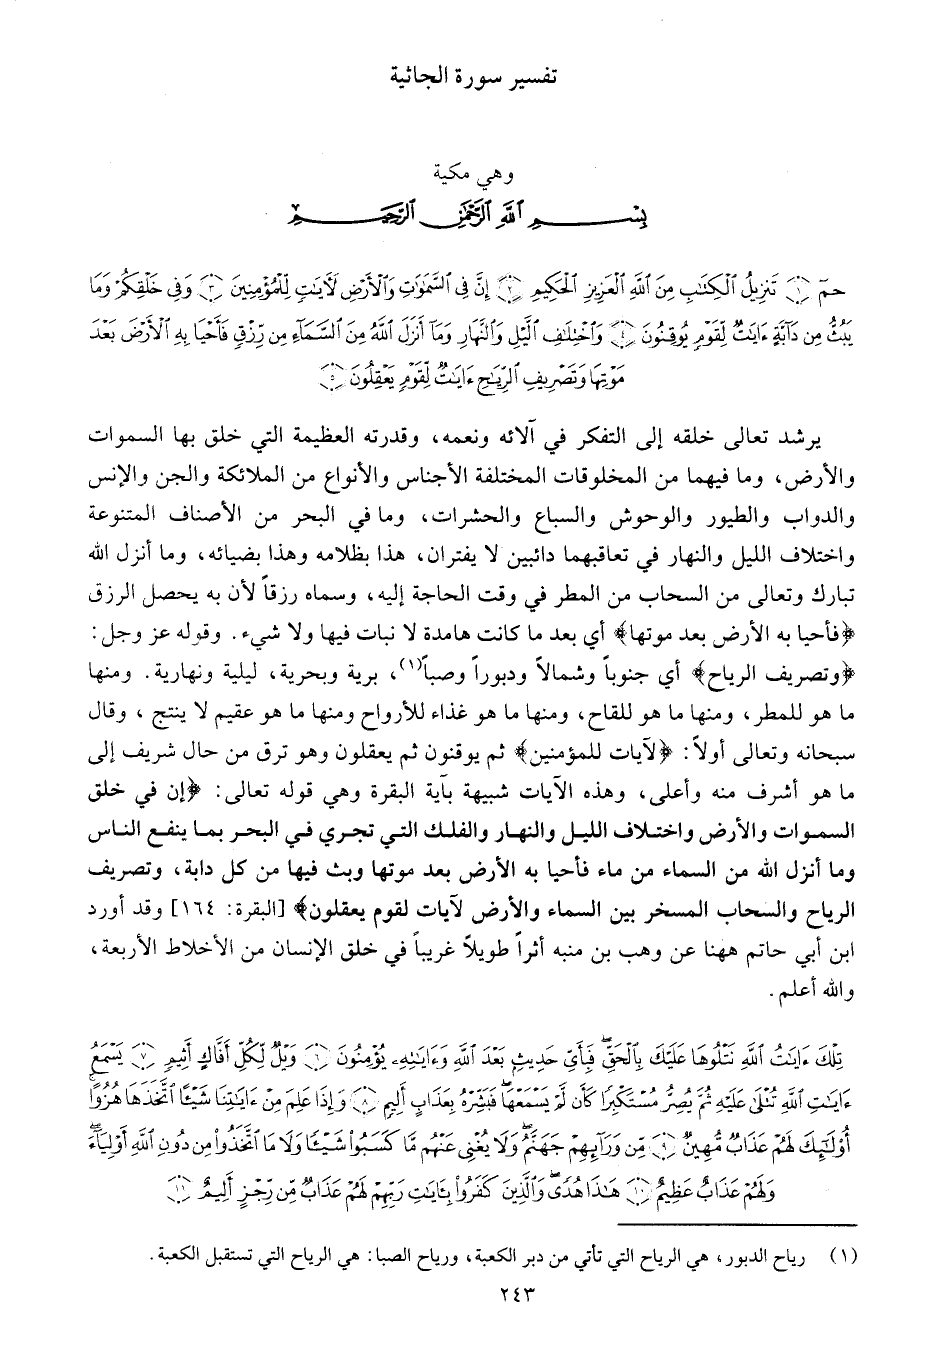 تفسير سورة الجاثية
وهي مكية
بِسْمِ ٱللَّهِ ٱلرَّحْمَٰنِ ٱلرَّحِيمِ
حمٓ ﴿١﴾ تَنزِيلُ ٱلْكِتَٰبِ مِنَ ٱللَّهِ ٱلْعَزِيزِ ٱلْحَكِيمِ ﴿٢﴾ إِنَّ فِى ٱلسَّمَٰوَٰتِ وَٱلْأَرْضِ لَءَايَٰتٍ لِّلْمُؤْمِنِينَ ﴿٣﴾ وَفِى خَلْقِكُمْ وَمَا
يَبُثُّ مِن دَآبَّةٍ ءَايَٰتٌ لِّقَوْمٍ يُوقِنُونَ ﴿٤﴾ وَٱخْتِلَٰفِ ٱلَّيْلِ وَٱلنَّهَارِ وَمَآ أَنزَلَ ٱللَّهُ مِنَ ٱلسَّمَآءِ مِن رِّزْقٍ فَأَحْيَا بِهِ ٱلْأَرْضَ بَعْدَ
مَوْتِهَا وَتَصْرِيفِ ٱلرِّيَٰحِ ءَايَٰتٌ لِّقَوْمٍ يَعْقِلُونَ ﴿٥﴾
يرشد تعالى خلقه إلى التفكر في آلائه ونعمه، وقدرته العظيمة التي خلق بها السموات
والأرض، وما فيهما من المخلوقات المختلفة الأجناس والأنواع من الملائكة والجن والإنس
والدواب والطيور والوحوش والسباع والحشرات، وما في البحر من الأصناف المتنوعة
واختلاف الليل والنهار في تعاقبهما دائبين لا يفتران، هذا بظلامه وهذا بضيائه، وما أنزل الله
تبارك وتعالى من السحاب من المطر في وقت الحاجة إليه، وسماه رزقاً لأن به يحصل الرزق
﴿فأحيا به الأرض بعد موتها﴾ أي بعد ما كانت هامدة لا نبات فيها ولا شيء. وقوله عز وجل:
﴿وتصريف الرياح﴾ أي جنوباً وشمالاً ودبوراً وصباً(١)، برية وبحرية، ليلية ونهارية. ومنها
ما هو للمطر، ومنها ما هو للقاح، ومنها ما هو غذاء للأرواح ومنها ما هو عقيم لا ينتج، وقال
سبحانه وتعالى أولاً: ﴿لآيات للمؤمنين﴾ ثم يوقنون ثم يعقلون وهو ترق من حال شريف إلى
ما هو أشرف منه وأعلى، وهذه الآيات شبيهة بآية البقرة وهي قوله تعالى: ﴿إن في خلق
السموات والأرض واختلاف الليل والنهار والفلك التي تجري في البحر بما ينفع الناس
وما أنزل الله من السماء من ماء فأحيا به الأرض بعد موتها وبث فيها من كل دابة، وتصريف
الرياح والسحاب المسخر بين السماء والأرض لآيات لقوم يعقلون﴾ [البقرة: ١٦٤] وقد أورد
ابن أبي حاتم ههنا عن وهب بن منبه أثراً طويلاً غريباً في خلق الإنسان من الأخلاط الأربعة،
والله أعلم.
تِلْكَ ءَايَٰتُ ٱللَّهِ نَتْلُوهَا عَلَيْكَ بِٱلْحَقِّ ۖ فَبِأَىِّ حَدِيثٍۭ بَعْدَ ٱللَّهِ وَءَايَٰتِهِۦ يُؤْمِنُونَ ﴿٦﴾ وَيْلٌ لِّكُلِّ أَفَّاكٍ أَثِيمٍ ﴿٧﴾ يَسْمَعُ
ءَايَٰتِ ٱللَّهِ تُتْلَىٰ عَلَيْهِ ثُمَّ يُصِرُّ مُسْتَكْبِرًا كَأَن لَّمْ يَسْمَعْهَا ۖ فَبَشِّرْهُ بِعَذَابٍ أَلِيمٍ ﴿٨﴾ وَإِذَا عَلِمَ مِنْ ءَايَٰتِنَا شَيْـًٔا ٱتَّخَذَهَا هُزُوًا ۚ
أُو۟لَٰٓئِكَ لَهُمْ عَذَابٌ مُّهِينٌ ﴿٩﴾ مِّن وَرَآئِهِمْ جَهَنَّمُ ۖ وَلَا يُغْنِى عَنْهُم مَّا كَسَبُوا۟ شَيْـًٔا وَلَا مَا ٱتَّخَذُوا۟ مِن دُونِ ٱللَّهِ أَوْلِيَآءَ ۖ
وَلَهُمْ عَذَابٌ عَظِيمٌ ﴿١٠﴾ هَٰذَا هُدًى ۖ وَٱلَّذِينَ كَفَرُوا۟ بِـَٔايَٰتِ رَبِّهِمْ لَهُمْ عَذَابٌ مِّن رِّجْزٍ أَلِيمٌ ﴿١١﴾
(١) رياح الدبور، هي الرياح التي تأتي من دبر الكعبة، ورياح الصبا: هي الرياح التي تستقبل الكعبة.
٢٤٣